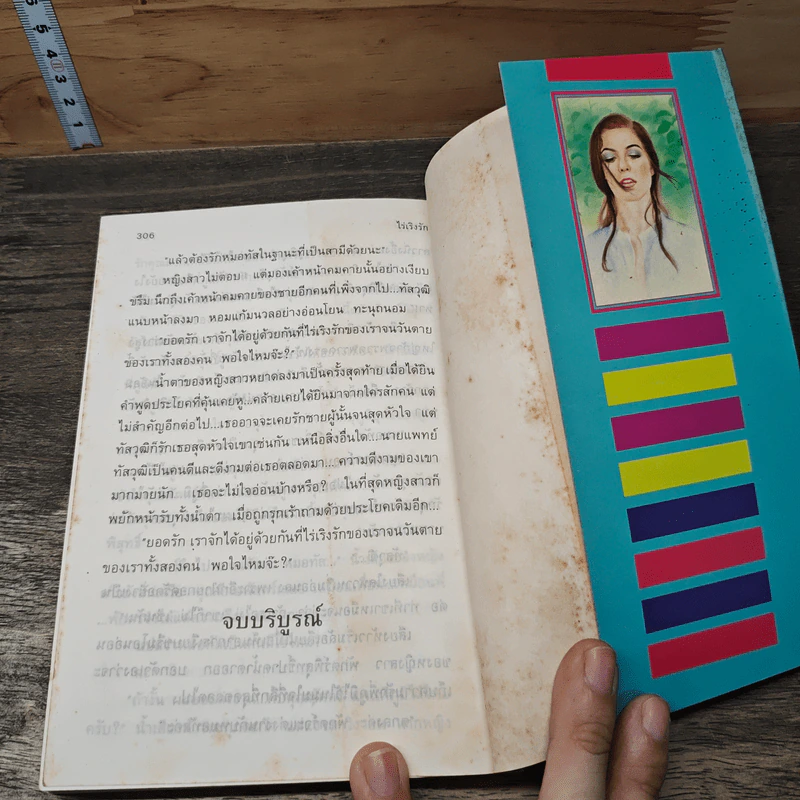 306
ไร่เริงรัก
"แล้วต้องรักหมอทัสในฐานะที่เป็นสามีด้วยนะ"
หญิงสาวไม่ตอบ แต่มองเค้าหน้าคมคายนั้นอย่างเงียบ
ขรึม นึกถึงเค้าหน้าคมคายของชายอีกคนที่เพิ่งจากไป...ทัสวุฒิ
แนบหน้าลงมา หอมแก้มนวลอย่างอ่อนโยน ทะนุถนอม
"ยอดรัก เราจักได้อยู่ด้วยกันที่ไร่เริงรักของเราจนวันตาย
ของเราทั้งสองคน พอใจไหมจ๊ะ?"
น้ำตาของหญิงสาวหยาดลงมาเป็นครั้งสุดท้าย เมื่อได้ยิน
คำพูดประโยคที่คุ้นเคยหู...คล้ายเคยได้ยินมาจากใครสักคน แต่
ไม่สำคัญอีกต่อไป...เธออาจจะเคยรักชายผู้นั้นจนสุดหัวใจ แต่
ทัสวุฒิก็รักเธอสุดหัวใจเขาเช่นกัน เหนือสิ่งอื่นใด...นายแพทย์
ทัสวุฒิเป็นคนดีและดีงามต่อเธอตลอดมา...ความดีงามของเขา
มากมายนัก เธอจะไม่ใจอ่อนบ้างหรือ? ในที่สุดหญิงสาวก็
พยักหน้ารับทั้งน้ำตา เมื่อถูกรุกเร้าถามด้วยประโยคเดิมอีก...
"ยอดรัก เราจักได้อยู่ด้วยกันที่ไร่เริงรักของเราจนวันตาย
ของเราทั้งสองคน พอใจไหมจ๊ะ?"
จบบริบูรณ์
6
5
4
3
2
1